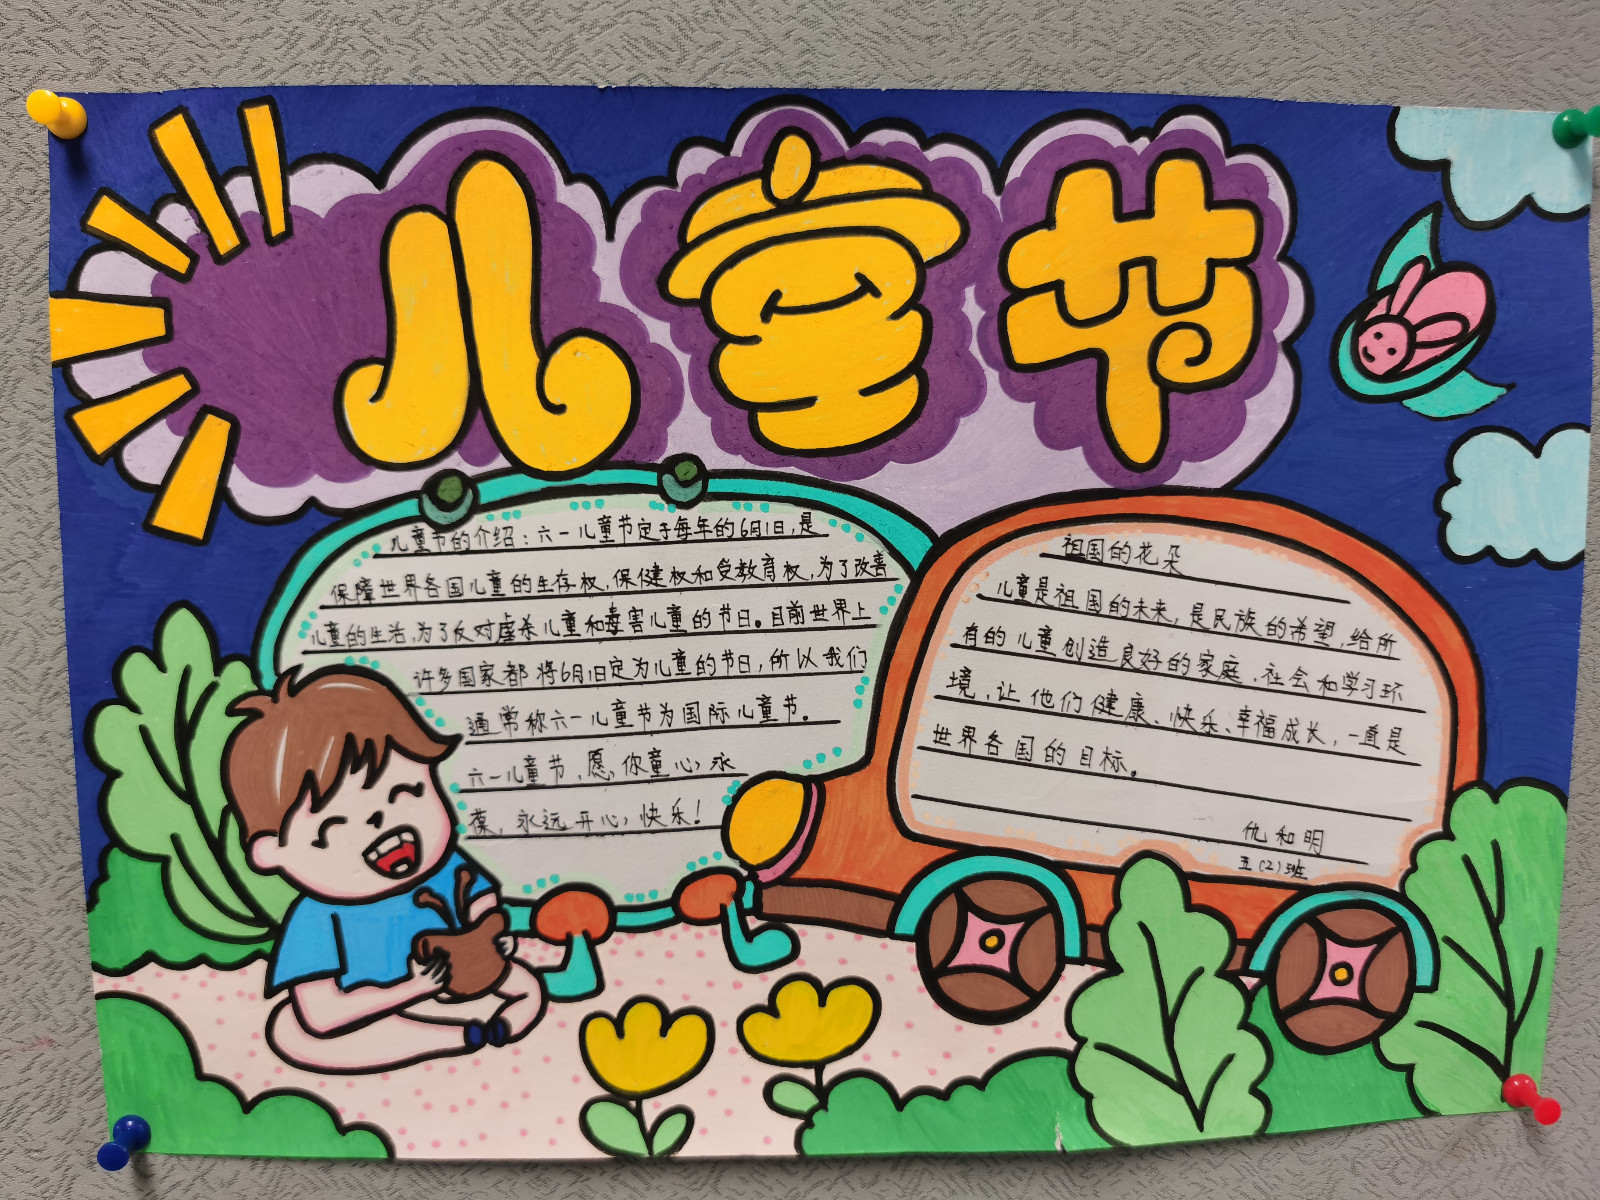 儿童节
儿童节的介绍：六一儿童节定于每年的6月1日，是
保障世界各国儿童的生存权，保健权和受教育权，为了改善
儿童的生活，为了反对虐杀儿童和毒害儿童的节日。目前世界上
许多国家都将6月1日定为儿童的节日，所以我们
通常称六一儿童节为国际儿童节。
六一儿童节，愿，你童心，永
葆，永远开心，快乐！
祖国的花朵
儿童是祖国的未来，是民族的希望，给所
有的儿童创造良好的家庭、社会和学习环
境，让他们健康、快乐、幸福成长，一直是
世界各国的目标。
仇和明
五（2）班